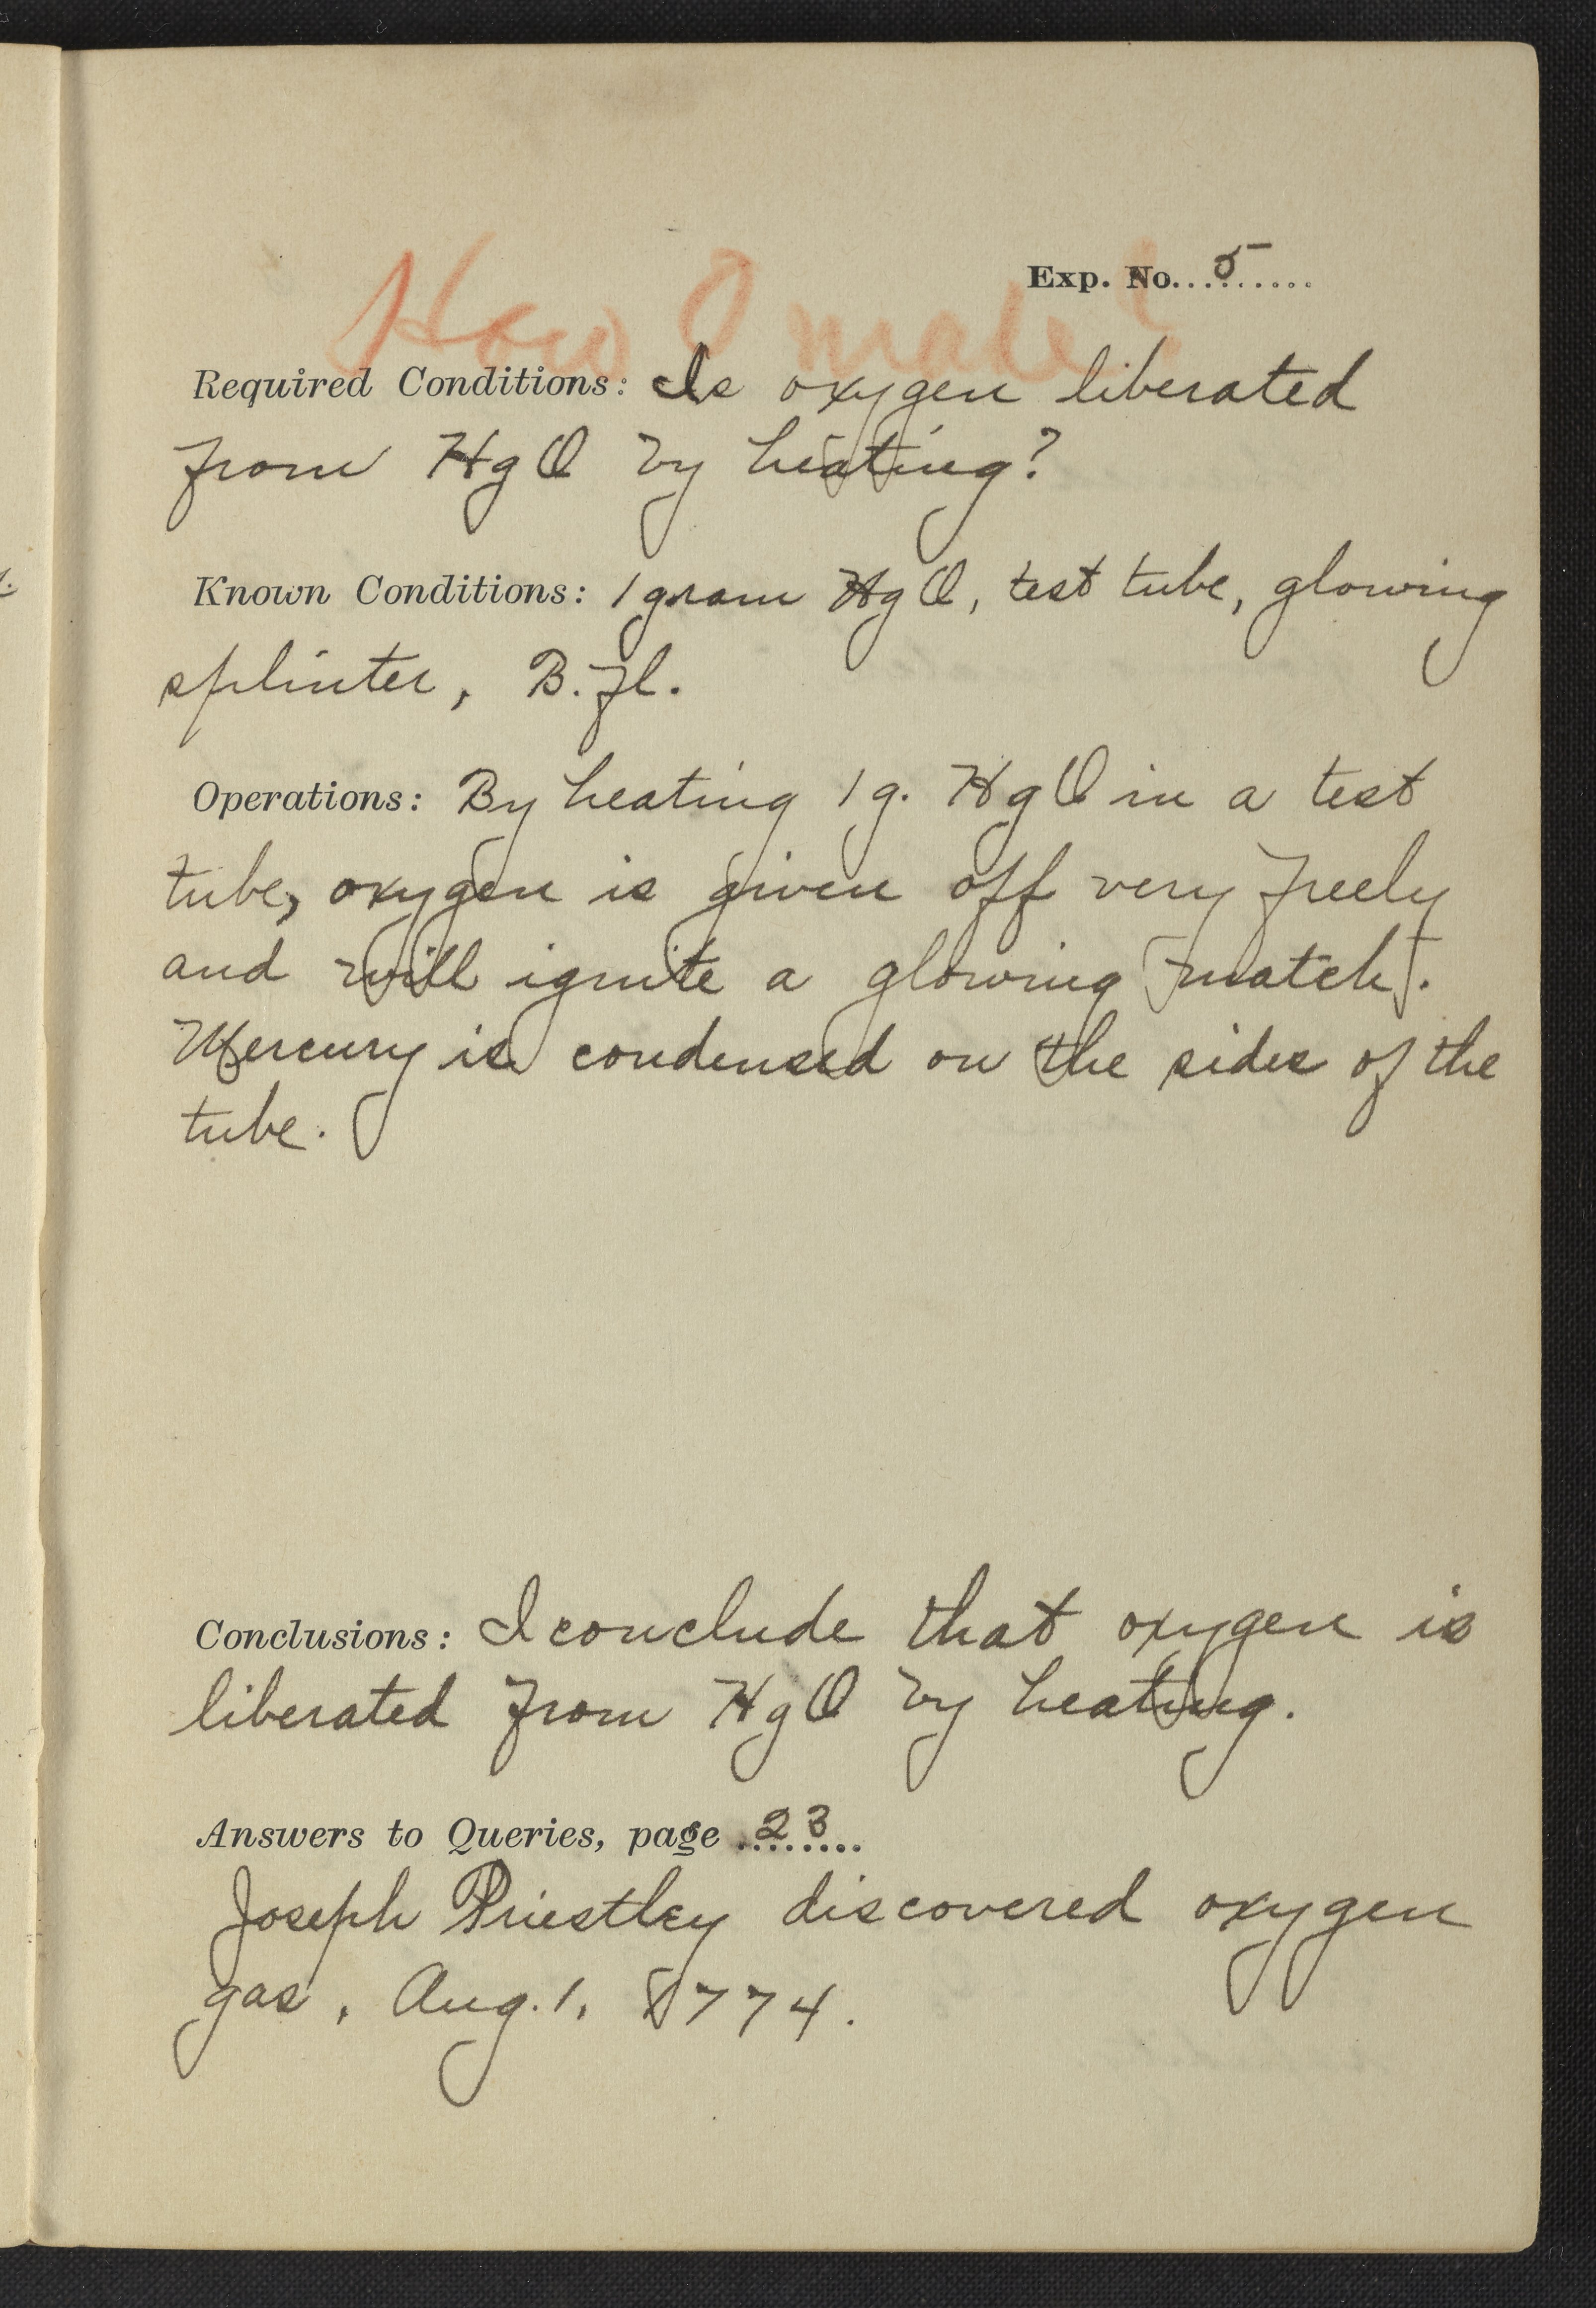 Exp. No. 5
How O made?
Required Conditions: Is oxygen liberated
from HgO by heating?
Known Conditions: 1 gram HgO, test tube, glowing
splinter, B. fl.
Operations: By heating 1 g. HgO in a test
tube, oxygen is given off very freely
and will ignite a glowing [match].
Mercury is condensed on the sides of the
tube.
Conclusions: I conclude that oxygen is
liberated from HgO by heating.
Answers to Queries, page 23
Joseph Priestley discovered oxygen
gas, Aug. 1, 1774.